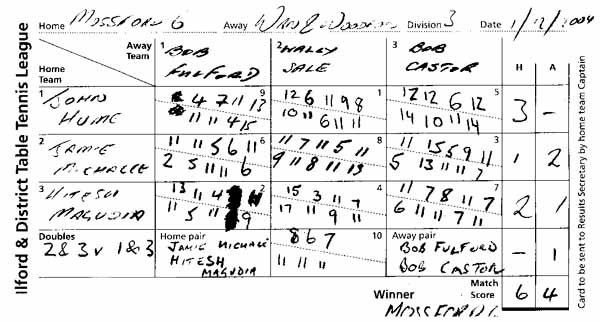 Ilford & District Table Tennis League
Home MOSSFORD 6 Away Division 3 Date
Away Team 1 BOB FULFORD 2 WALLY SALE 3 BOB CASTOR H A
Home Team
1 JOHN HUME 9 1 5 3 -
4 7 11 13 12 6 11 9 8 12 12 6 12
11 11 4 15 10 11 6 11 11 14 10 11 14
2 JAMIE MICHALLE 6 8 3 1 2
11 11 5 6 11 11 7 11 5 11 15 5 9 11
2 5 11 11 6 9 11 8 11 13 5 13 11 11 7
3 HITESH MAGUDIA 2 4 7 2 1
13 11 4 11 15 3 11 7 11 7 8 11 7
11 5 11 9 17 11 9 11 6 11 11 7 11
Doubles 2 & 3 v 1 & 3 Home pair JAMIE MICHALE HITESH MAGUDIA 10 Away pair BOB FULFORD BOB CASTOR - 1
8 6 7
11 11 11
Winner Match Score 6 4
Card to be sent to Results Secretary by home team Captain